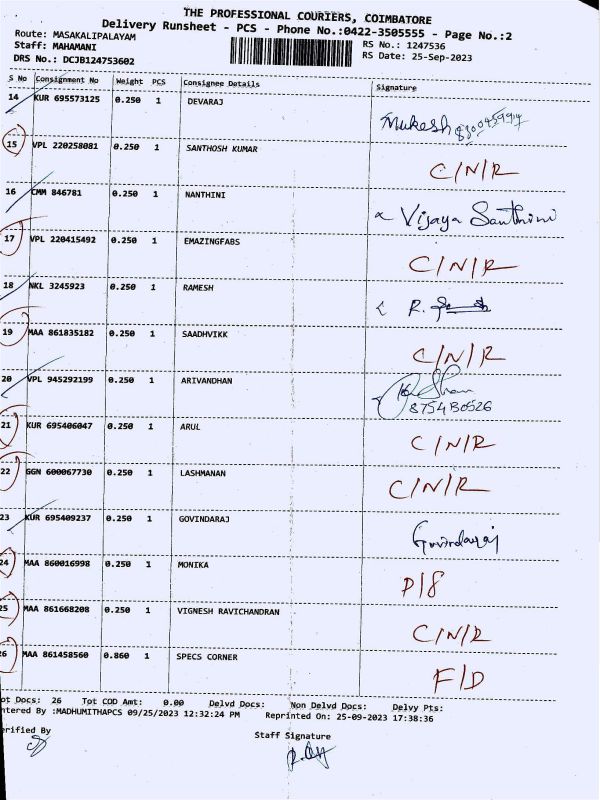 THE PROFESSIONAL COURIERS, COIMBATORE
Delivery Runsheet - PCS - Phone No.:0422-3505555 - Page No.:2
Route: MASAKALIPALAYAM
Staff: MAHAMANI
DRS No.: DCJB124753602
RS No.: 1247536
RS Date: 25-Sep-2023
S No Consignment No Weight PCS Consignee Details Signature
14 KUR 695573125 0.250 1 DEVARAJ Mukesh
15 VPL 220258081 0.250 1 SANTHOSH KUMAR C/N/R
16 CMM 846781 0.250 1 NANTHINI Vijaya Santhini
17 VPL 220415492 0.250 1 EMAZINGFABS C/N/R
18 NKL 3245923 0.250 1 RAMESH R.
19 MAA 861835182 0.250 1 SAADHVIKK C/N/R
20 VPL 945292199 0.250 1 ARIVANDHAN
21 KUR 695406047 0.250 1 ARUL C/N/R
22 GGN 600067730 0.250 1 LASHMANAN C/N/R
23 KUR 695409237 0.250 1 GOVINDARAJ Govindaraj
24 MAA 860016998 0.250 1 MONIKA D/8
25 MAA 861668208 0.250 1 VIGNESH RAVICHANDRAN C/N/R
26 MAA 861458560 0.860 1 SPECS CORNER F/D
ot Docs: 26 Tpt COD Amt: 0.00 Delvd Docs: Non Delvd Docs: Delvy Pts:
ntered By :MADHUMITHAPCS 09/25/2023 12:32:24 PM Reprinted On: 25-09-2023 17:38:36
erified By
Staff Signature